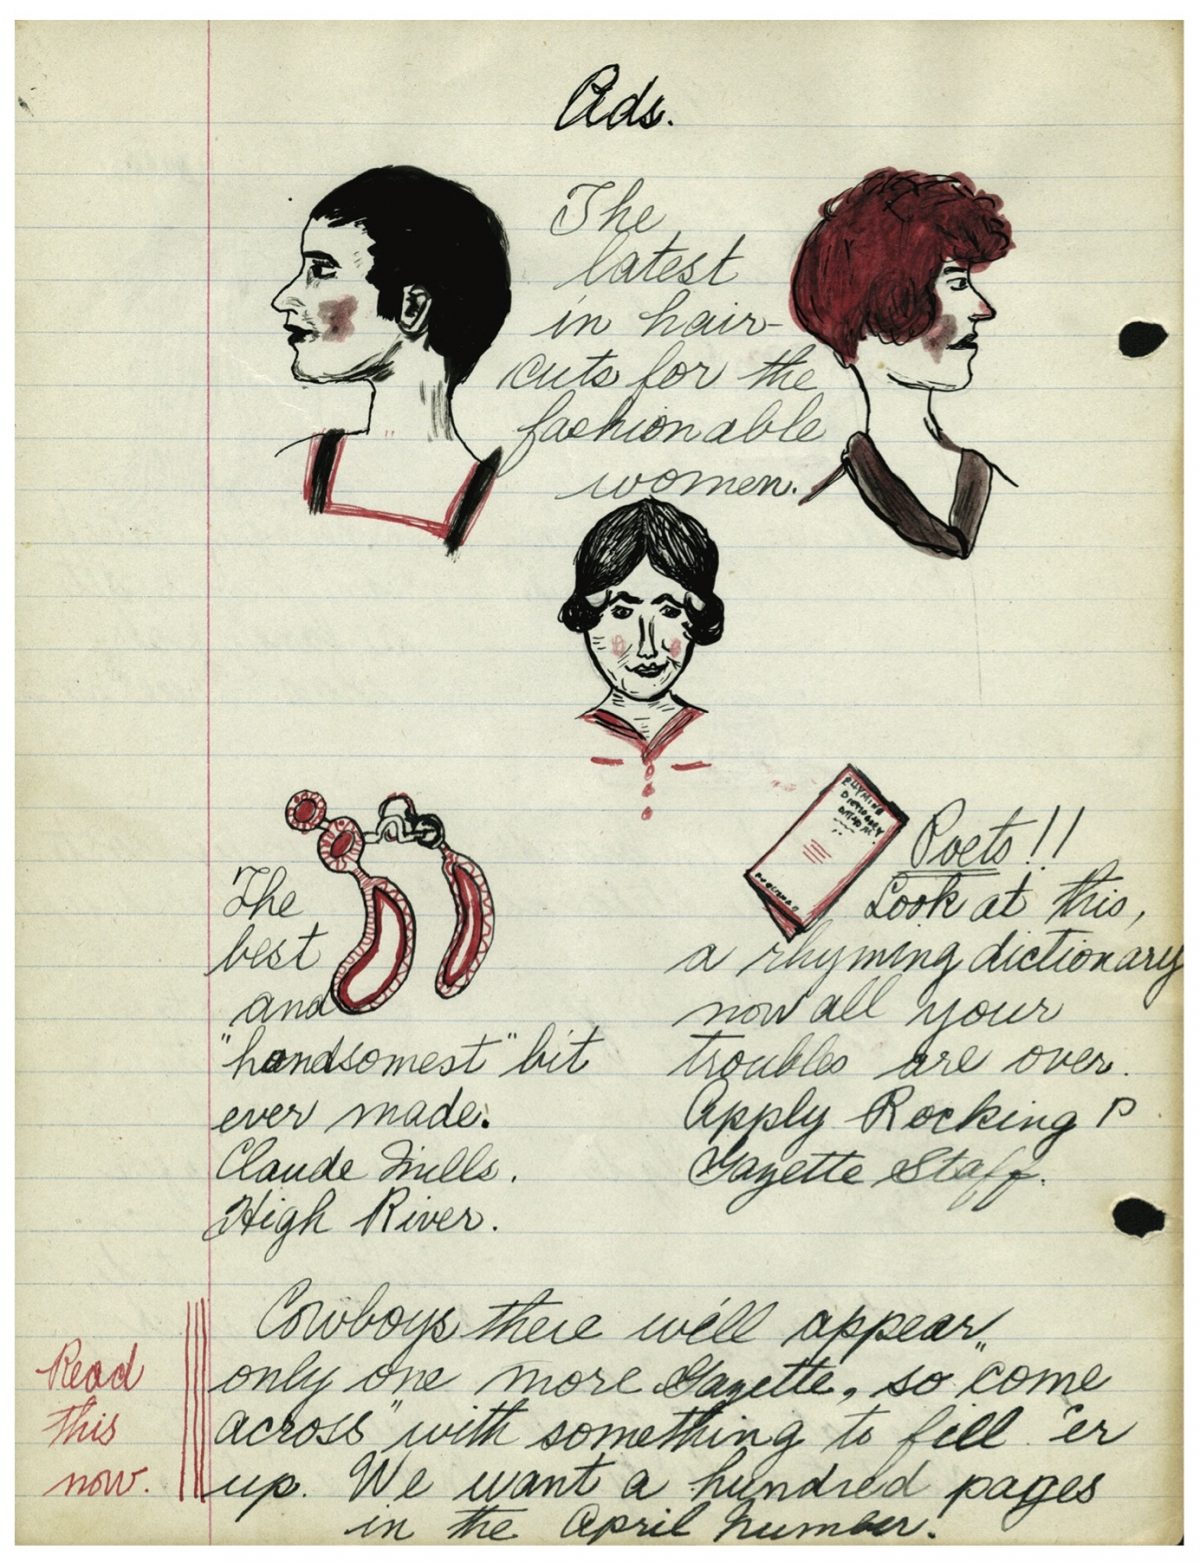 Ads.
The
latest
in hair-
cuts for the
fashionable
women.
The
best
and
"handsomest" bit
ever made.
Claude Mills.
High River.
RHYMING
DICTIONARY
Poets!!
Look at this,
a rhyming dictionary
now all your
troubles are over.
Apply Rocking P
Gazette Staff.
Read
this
now.
Cowboys there we'll appear
only one more Gazette, so "come
across" with something to fill 'er
up. We want a hundred pages
in the April number.